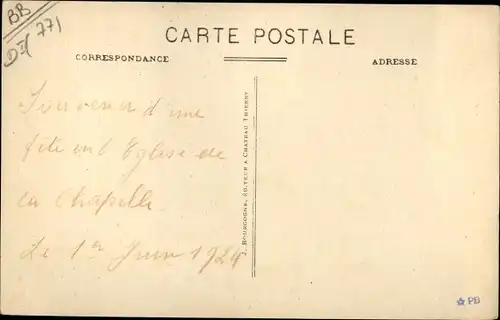 BB
771
CARTE POSTALE
CORRESPONDANCE
ADRESSE
Souvenir d'une
fête en l'Eglise de
La Chapelle
Le 1er Juin 1924
J. BOURGOGNE, ÉDITEUR A CHATEAU THIERRY
PB